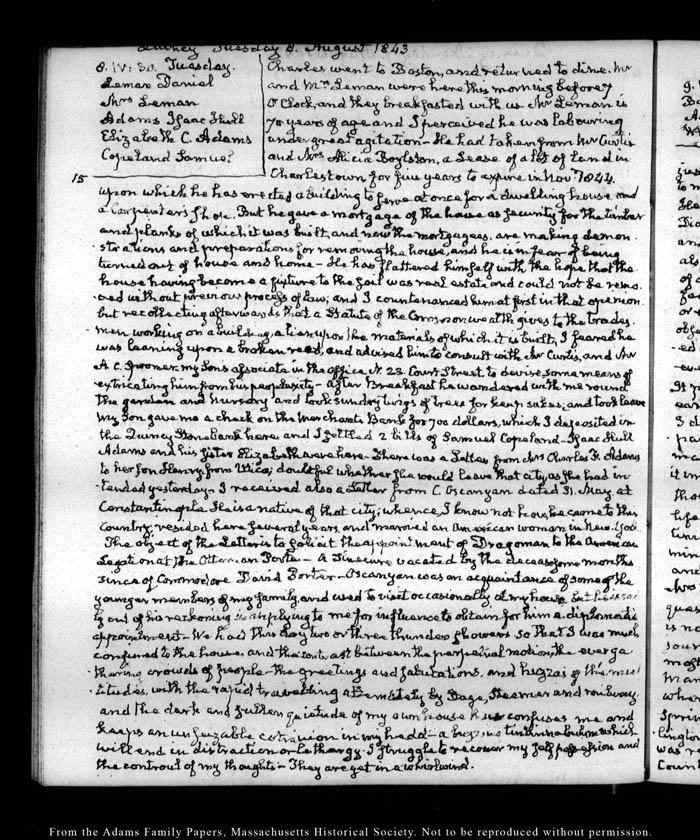 Quincy Tuesday 8. August 1843.
8. IV: 30. Tuesday.
Leman Daniel
Mrs Leman
Adams Isaac Hull
Elizabeth C. Adams
Copeland Samuel
15
Charles went to Boston, and returned to dine. Mr
and Mrs Leman were here this morning before 7
O'Clock, and they breakfasted with us. Mr Leman is
70 years of age and I perceived he was labouring
under great agitation - He had taken from Mr Curtis
and Mrs Alicia Boylston, a Lease of a lot of Land in
Charlestown for five years to expire in Nov? 1844.
upon which he has erected a building to serve at once for a dwelling house and
a Carpenter's Shop. But he gave a mortgage of the house as security for the timber
and planks of which it was built, and now the mortgagees, are making demon-
-strations and preparations for removing the house, and he is in fear of being
turned out of house and home - He has flattered himself with the hope that the
house having become a fixture to the soil was real estate and could not be remo-
-ved without previous process of law; and I countenanced him at first in that opinion.
but recollecting afterwards that a Statute of the Commonwealth gives to the trades-
men working on a building, a lien upon the materials of which it is built, I feared he
was leaning upon a broken reed, and advised him to consult with Mr Curtis, and Mr
A C. Spooner, my Sons associate in the office N. 23. Court Street, to devise, some means of
extricating him from his perplexity - After Breakfast he wandered with me round
the garden and nursery and took sundry twigs of trees for keep sakes; and took leave
My Son gave me a check on the Merchants Bank for 700 dollars, which I deposited in
the Quincy Stone bank here and I settled 2 bills of Samuel Copeland - Isaac Hull
Adams and his sister Elizabeth were here - There was a Letter from Mrs Charles F. Adams
to her son Henry, from Utica; doubtful whether she would leave that city, as she had in-
-tended yesterday. I received also a Letter from C. Oscanyan dated 31. May, at
Constantinople. He is a native of that city; whence, I know not how, he came to this
Country, resided here several years, and married an American woman in New York
The object of the Letter is to solicit the appointment of Dragoman to the American
Legation at the Ottoman Porte - A Sinecure vacated by the decease some months
since of Commodore David Porter - Oscanyan was an acquaintance of some of the
younger members of my family, and used to visit occasionally at my house but he is
out of his reckoning in applying to me for influence to obtain for him a diplomatic
appointment - We had this day two or three thunder showers so that I was much
confined to the house, and the contrast between the perpetual motion, the ever ga-
-thering crowds of people the greetings and salutations, and huzzas of the mul-
-titudes, with the rapid travelling alternately by Stage, Steamer and railway,
and the dark and sullen quietude of my own house confuses me and
keeps an in my head - a buzzing which
will end in distraction or lethargy - I struggle to recover my self possession and
the controul of my thoughts - They are yet in a whirlwind.
From the Adams Family Papers, Massachusetts Historical Society. Not to be reproduced without permission.